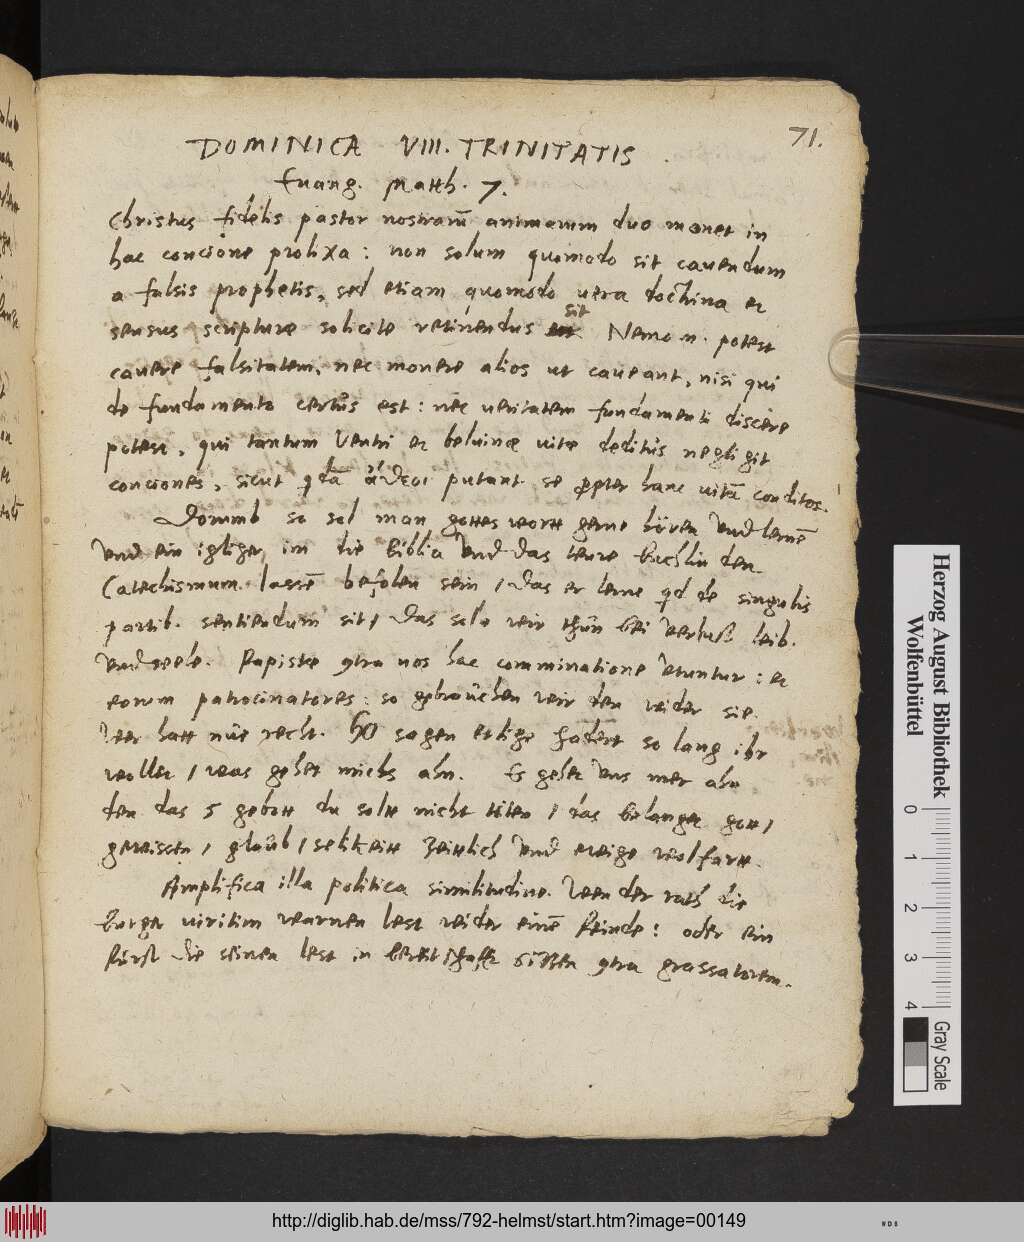 71.
DOMINICA VIII. TRINITATIS.
Euang. Matth. 7.
Christus fidelis pastor nostrarū animarum duo monet in
hac concione prolixa: non solum quomodo sit cauendum
a falsis prophetis, sed etiam quomodo uera doctrina et
sensus scripturæ solicite retinendus sit Nemo n. potest
cauere falsitatem, nec monere alios ut caueant, nisi qui
de fundamento certus est: nec ueritatem fundamenti discere
potest, qui tantum Ventri et beluinæ uitæ deditus negligit
conciones, sicut qdā putant se ꝓpter hanc uitā conditos.
Dorumb so sol man gottes wortt gerne hören Vnd lernē
Vnd ein igliger im die Biblia Vnd das teure Buchlin den
Catechismum lassē befolen sein / das er lerne qd de singulis
partib. sentiendum sit / das sole wir thun bei Verlust leib.
Vnd seele. Papistæ 9tra nos hac comminatione Vtuntur: et
eorum patrocinatores: so gebrauchen wir den wider sie.
Wer hatt nue recht. Ho sagen etlige hadert so lang ihr
wollet / was gehet michs ahn. Es gehet Vns mer ahn
den das 5 gebott du solt nicht töten / das belanget gott /
gewissen / glaub / selikeitt Zeittlich Vnd ewige wolfartt.
Amplifica illa politica similitudine. Wen der rath die
Burger uiritim warnen lest wider einē Feinde: oder ein
Fürst die seinen lest in bereitschafft sitzen 9tra grassatorem.
Herzog August Bibliothek
Wolfenbüttel
0 1 2 3 4
Gray Scale
http://diglib.hab.de/mss/792-helmst/start.htm?image=00149